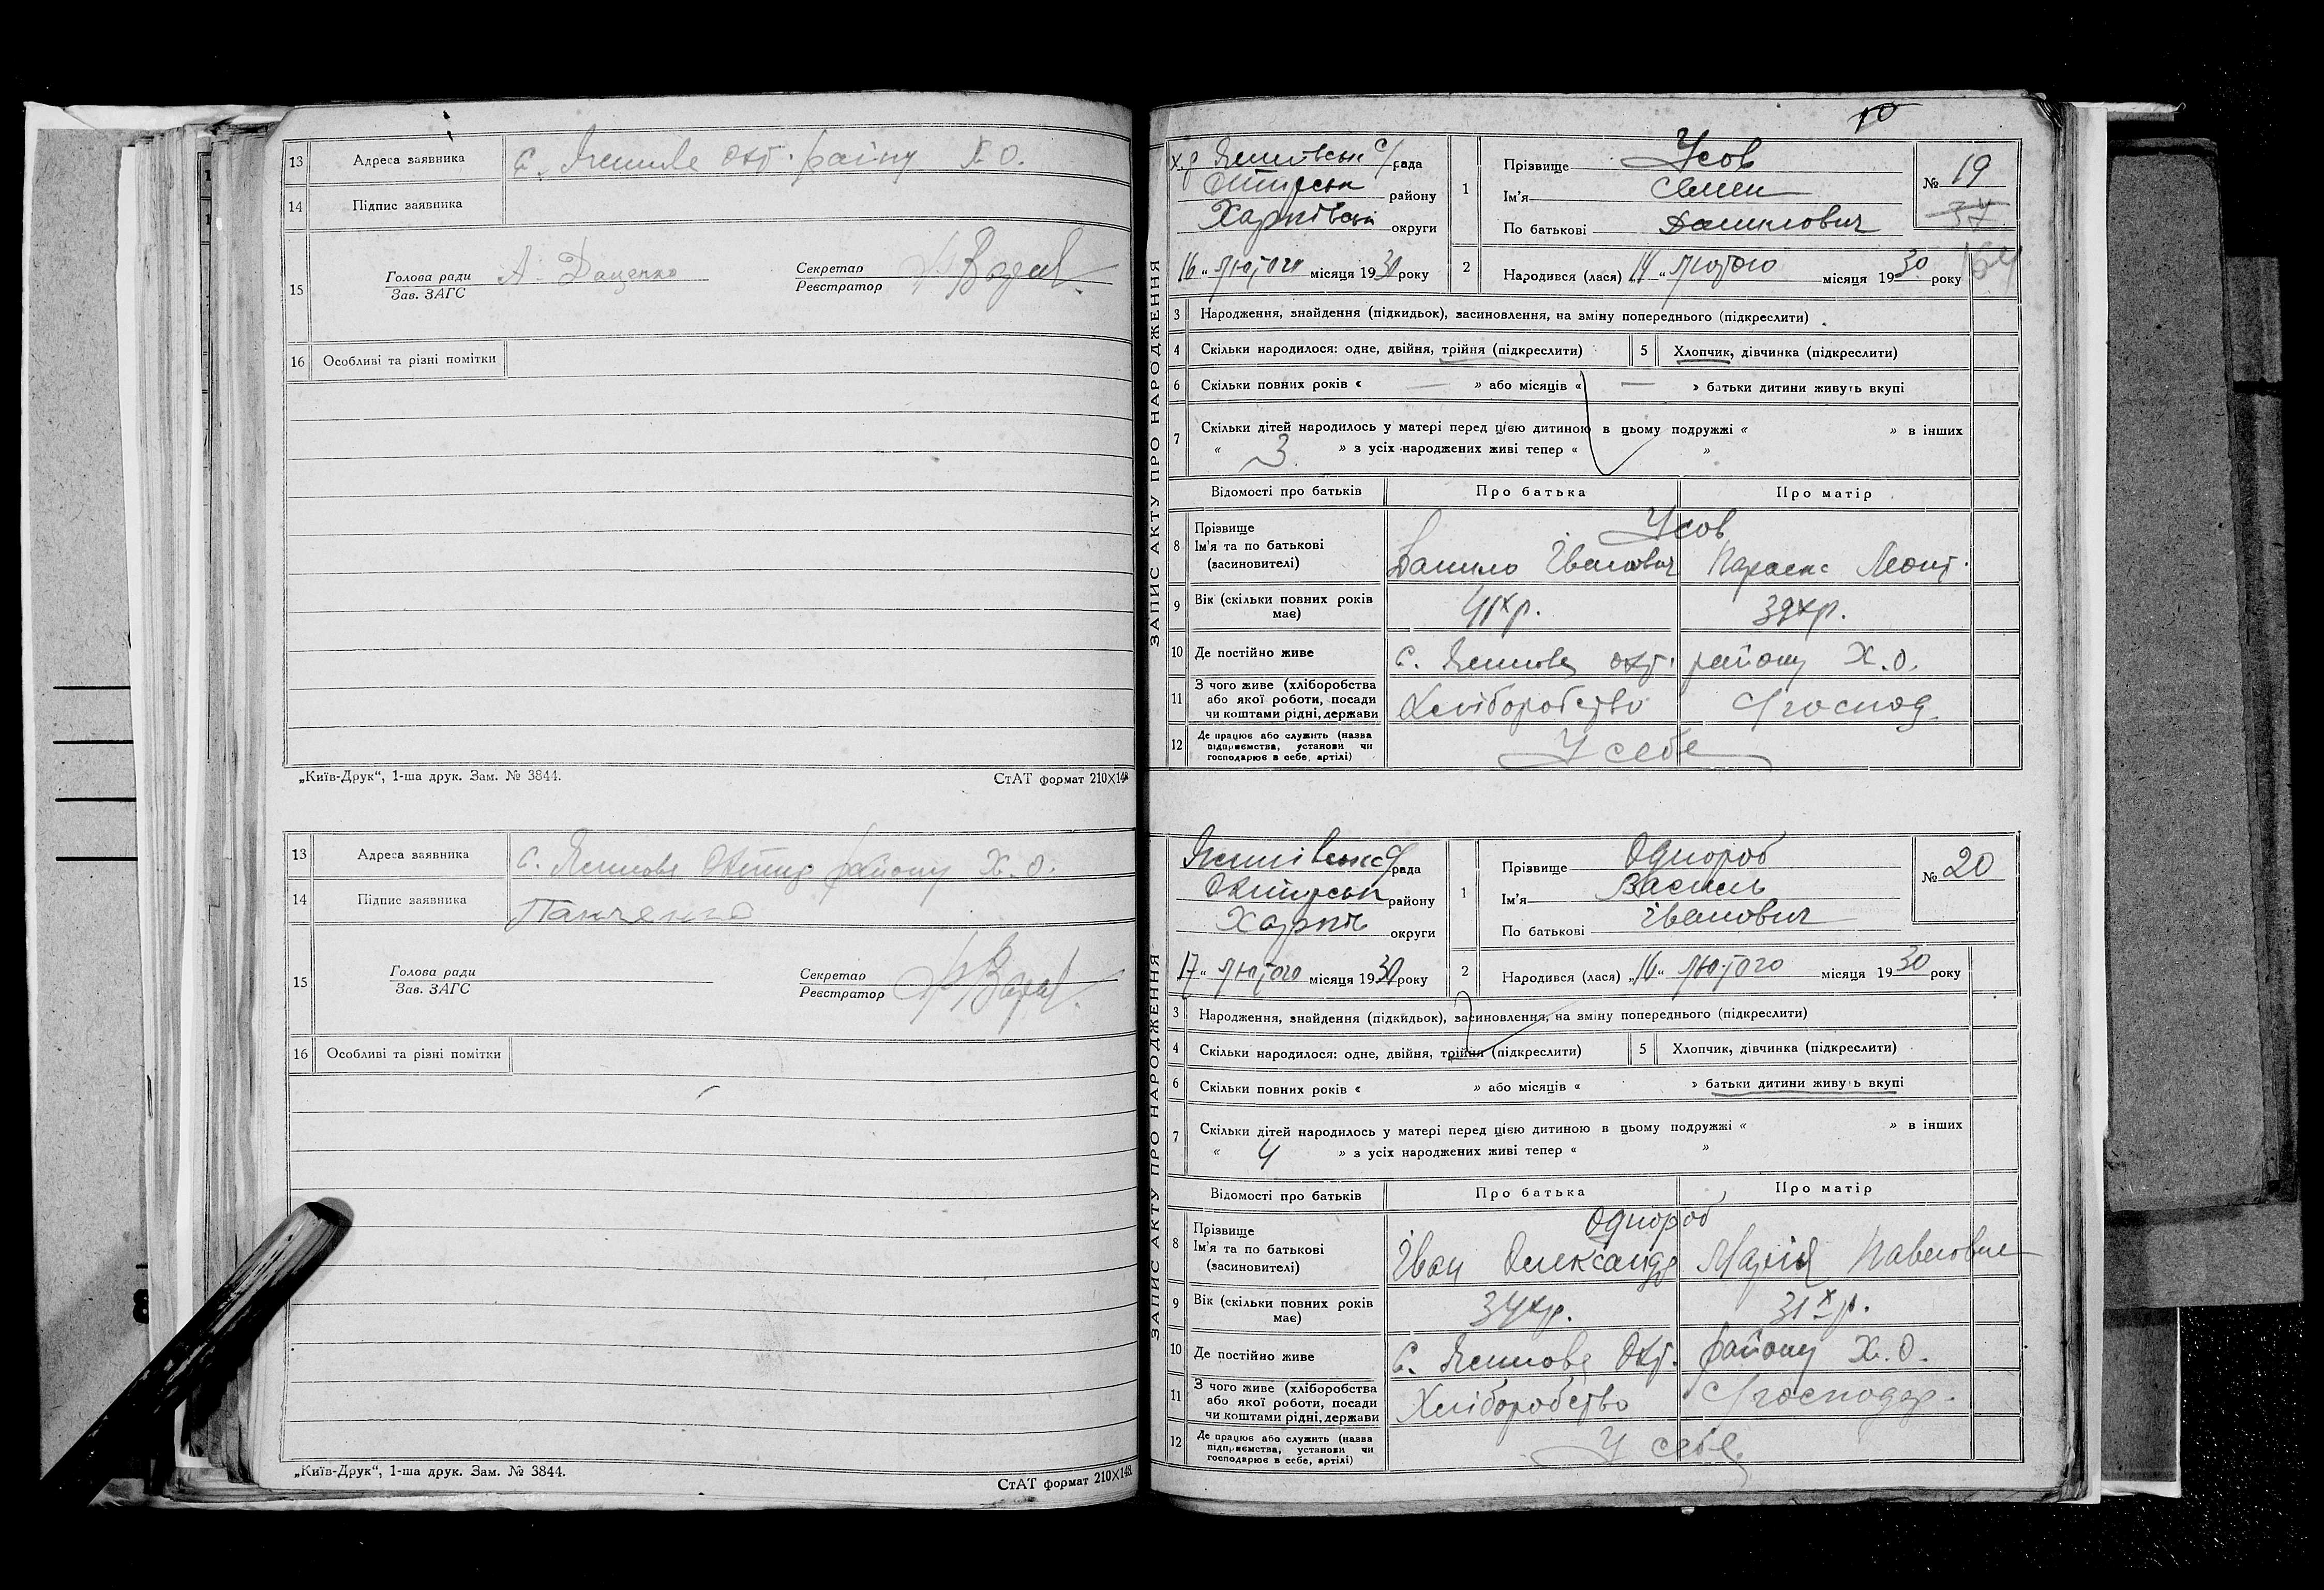 13 Адреса заявника с. Ясенове Охт. району Х. О.
14 Підпис заявника
15 Голова ради А. Даценко Секретар
Зав. ЗАГС Реєстратор
16 Особливі та різні помітки
„Київ-Друк“, 1-ша друк. Зам. № 3844. СтАТ формат 210×148
13 Адреса заявника с. Ясенове Охтир району Х. О.
14 Підпис заявника Панченко
15 Голова ради Секретар
Зав. ЗАГС Реєстратор
16 Особливі та різні помітки
„Київ-Друк“, 1-ша друк. Зам. № 3844. СтАТ формат 210×148
10
ЗАПИС АКТУ ПРО НАРОДЖЕННЯ
с/рада
району
Харківськ округи
16 „ Лютого місяця 1930 року
1 Прізвище Усов
Ім'я Семен
По батькові Данилович
№ 19
37
2 Народився (лася) „14„ Лютого місяця 1930 року
3 Народження, знайдення (підкидьок), засиновлення, на зміну попереднього (підкреслити)
4 Скільки народилося: одне, двійня, трійня (підкреслити) 5 Хлопчик, дівчинка (підкреслити)
6 Скільки повних років « — » або місяців « — » батьки дитини живуть вкупі
7 Скільки дітей народилось у матері перед цією дитиною в цьому подружжі « » в інших
« 3 » з усіх народжених живі тепер « »
Відомості про батьків Про батька Про матір
8 Прізвище Усов
Ім'я та по батькові
(засиновителі) Данило Іванович Параска Леонт.
9 Вік (скільки повних років має) 41 х р. 39 х р.
10 Де постійно живе с. Ясенове Охт. району Х. О.
11 З чого живе (хліборобства
або якої роботи, посади
чи коштами рідні, держави Хліборобство С/господ
12 Де працює або служить (назва
підприємства, установи чи
господарює в себе, артілі) У себе
ЗАПИС АКТУ ПРО НАРОДЖЕННЯ
с/рада
Охтирськ району
Харків округи
17 „ Лютого місяця 1930 року
1 Прізвище Однороб
Ім'я Василь
По батькові Іванович
№ 20
2 Народився (лася) „16„ Лютого місяця 1930 року
3 Народження, знайдення (підкидьок), засиновлення, на зміну попереднього (підкреслити)
4 Скільки народилося: одне, двійня, трійня (підкреслити) 5 Хлопчик, дівчинка (підкреслити)
6 Скільки повних років « » або місяців « » батьки дитини живуть вкупі
7 Скільки дітей народилось у матері перед цією дитиною в цьому подружжі « » в інших
« 4 » з усіх народжених живі тепер « »
Відомості про батьків Про батька Про матір
8 Прізвище Однороб
Ім'я та по батькові
(засиновителі) Іван Олександр Марія Павеловне
9 Вік (скільки повних років має) 34 х р. 31 х р.
10 Де постійно живе с. Ясенове Охт. району Х. О.
11 З чого живе (хліборобства
або якої роботи, посади
чи коштами рідні, держави Хліборобство С/господар.
12 Де працює або служить (назва
підприємства, установи чи
господарює в себе, артілі) У себе